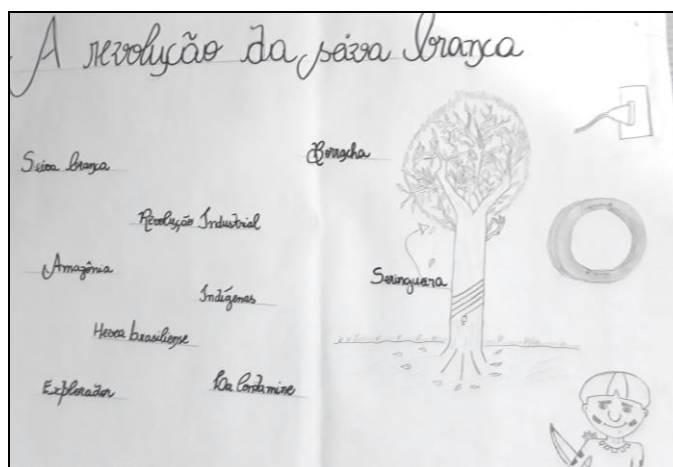 A revolução da seiva branca
Seiva branca
Borracha
Revolução Industrial
Amazônia
Indígenas
Seringueira
Hevea brasiliense
Explorador
La Condamine